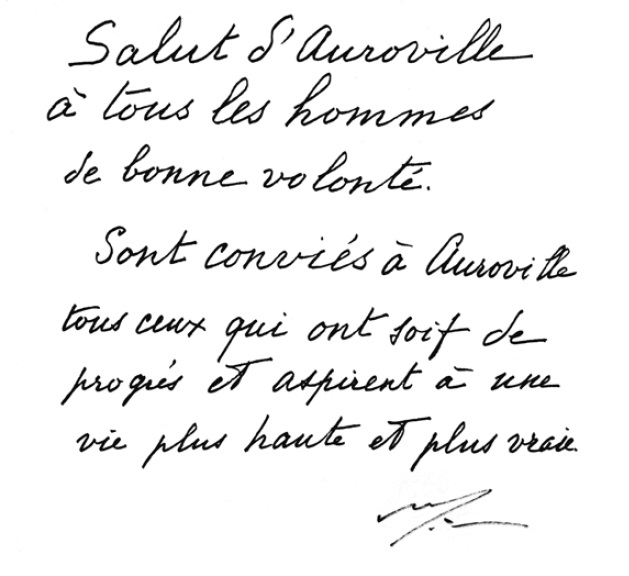 Salut d'Auroville
à tous les hommes
de bonne volonté.
Sont conviés à Auroville
tous ceux qui ont soif de
progrès et aspirent à une
vie plus haute et plus vraie.